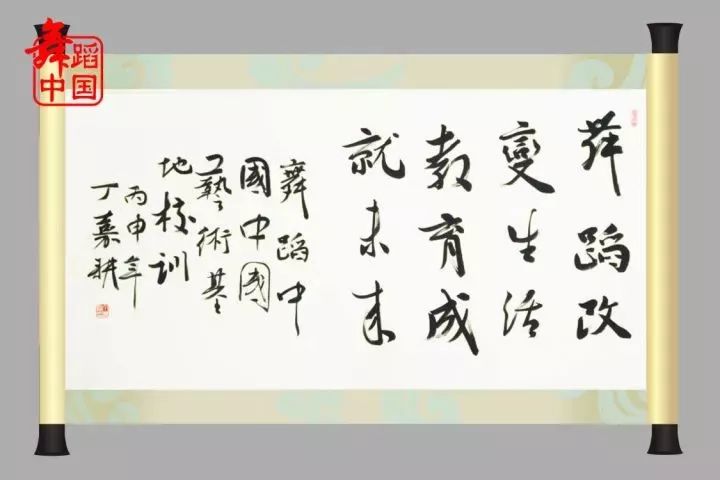 舞蹈
中国
舞蹈改
變生活
教育成
就未来
舞蹈中
國中國
藝術基
地校训
丙申年
丁嘉耕